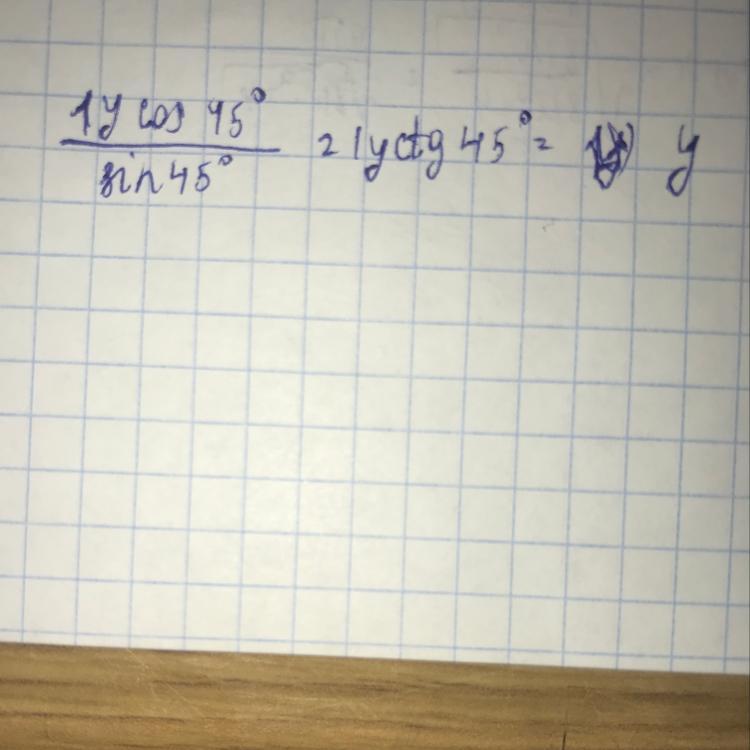 1y cos 45°
sin 45°
= 1y ctg 45° = y